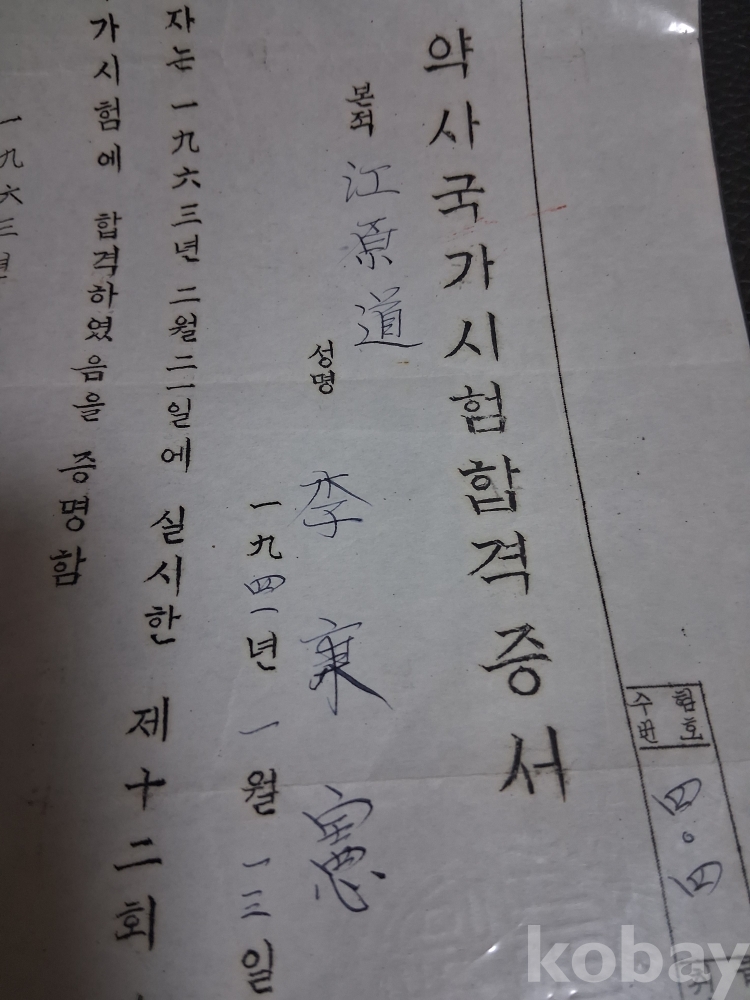 수험번호
四〇四
약사국가시험합격증서
본적 江原道
성명 李 憲
一九四一년 一월 一三일
자는 一九六三년 二월二一일에 실시한 제十二회
가시험에 합격하였음을 증명함
一九六三년
kobay